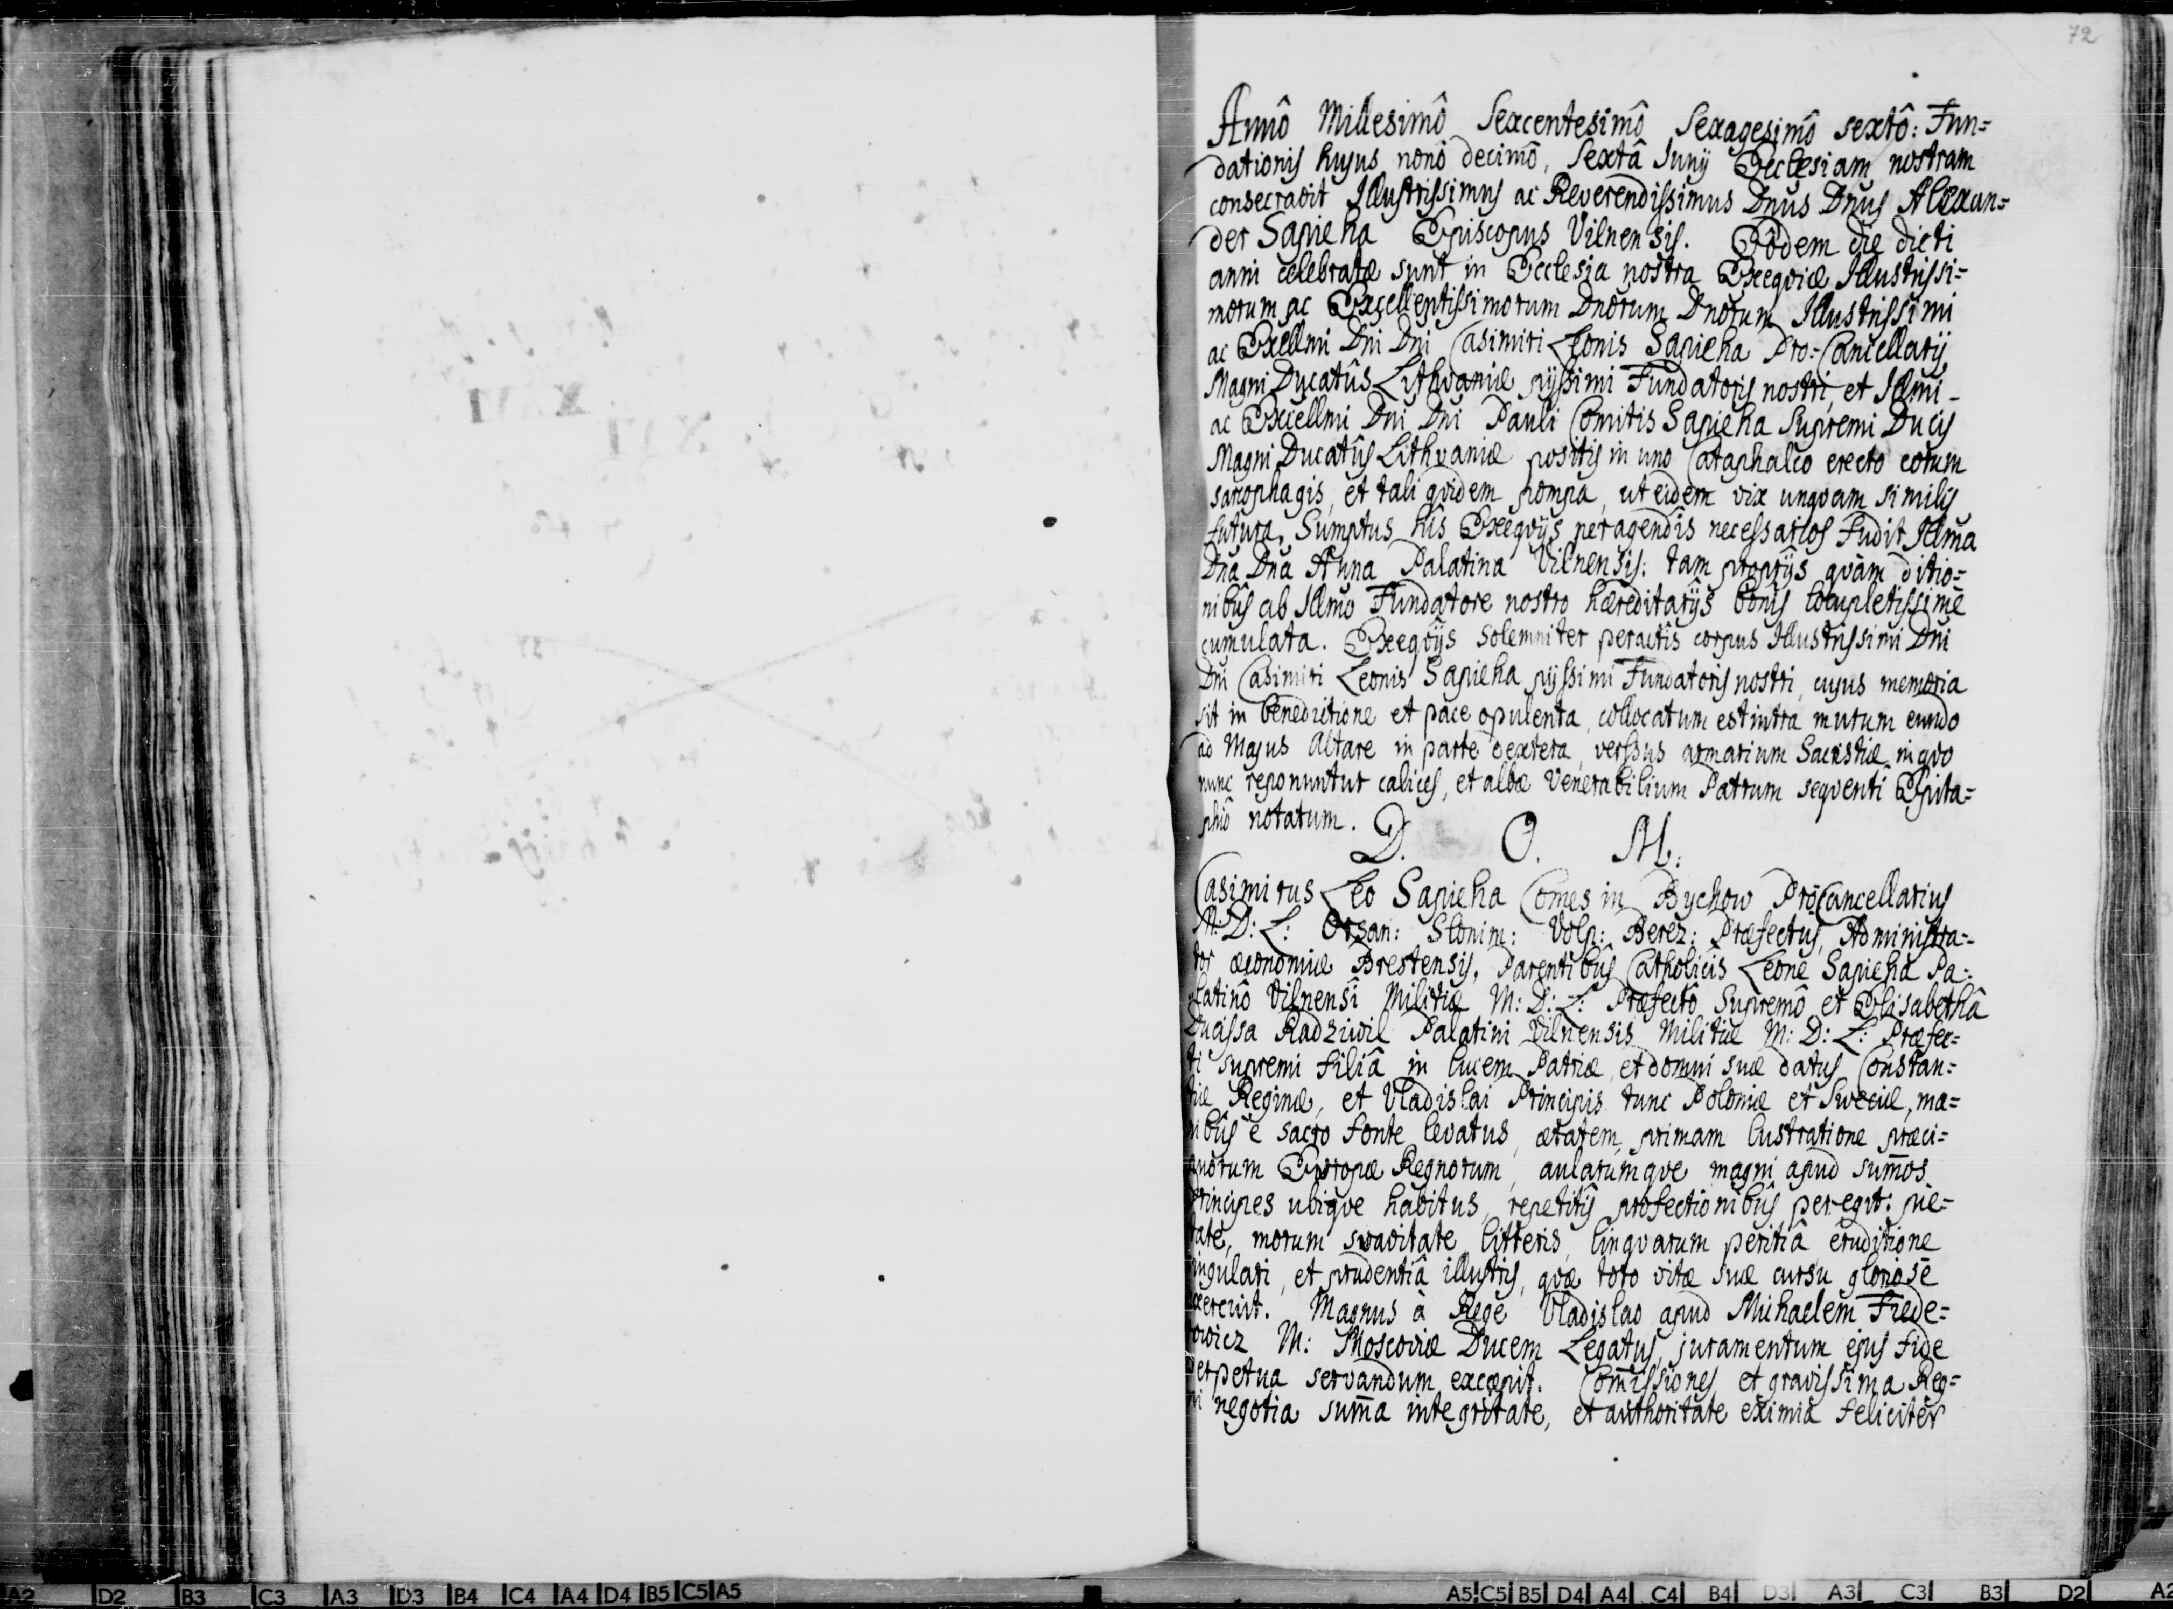 72
Annô Millesimô Sexcentesimô Sexagesimô sextô: Fun=
dationis hujus nonô decimô, Sextâ Junij Ecclesiam nostram
consecravit Illustrissimus ac Reverendissimus Dnus Dnus Alexan=
der Sapieha Episcopus Vilnensis. Eôdem die dicti
anni celebratæ sunt in Ecclesia nostra Exeqviæ Illustrissi=
morum ac Excellentissimorum Dnorum Dnorum Illustrissimi
ac Exellmi Dni Dni Casimiri Leonis Sapieha Pro=Cancellarij
Magni Ducatûs Lithvaniæ pijssimi Fundatoris nostri, et Illmi
ac Excellmi Dni Dni Pauli Comitis Sapieha Supremi Ducis
Magni Ducatûs Lithvaniæ positis in uno Cataphalco erecto eorum
sarcophagis, et tali qvidem pompa, ut eidem vix unqvam similis
futura. Sumptus his Exeqvijs peragendis necessarios Fudit Illma
Dna Dna Anna Palatina Vilnensis: tam proprijs qvàm ditio=
nibus ab Illmo Fundatore nostro hæreditarijs bonis locupletissimè
cumulata. Exeqvijs solemniter peractis corpus Illustrissimi Dni
Dni Casimiri Leonis Sapieha pijssimi Fundatoris nostri, cujus memoria
sit in benedictione et pace opulenta, collocatum est intra murum eundo
ad Majus Altare in parte dextera, versus armarium Sacristiæ in qvo
nunc reponuntur calices, et albæ Venerabilium Patrum seqventi Epita=
phiô notatum.
D. O. M.
Casimirus Leo Sapieha Comes in Bychow ProCancellarius
M: D: L: Orsan: Slonim: Volp: Berez: Præfectus, Administra=
tor œconomiæ Brestensis, Parentibus Catholicis Leone Sapieha Pa=
latinô Vilnensi Militiæ M: D: L: Præfectô Supremô et Elisabethâ
Ducissa Radziwil Palatini Vilnensis Militiæ M: D: L: Præfec=
ti supremi filiâ in lucem Patriæ, et domui suæ datus Constan=
tiæ Reginæ, et Vladislai Principis tunc Poloniæ et Sveciæ, ma=
nibus è sacro fonte levatus, ætatem primam lustratione præci=
puorum Europæ Regnorum, aularumqve magni apud sum̄os
Principes ubiqve habitus, repetitis profectionibus peregit: pie=
tate, morum svavitate, litteris, lingvarum peritiâ, eruditione
singulari, et prudentiâ illustris, qvæ toto vitæ suæ cursu gloriosè
exercuit. Magnus à Rege Vladislao apud Michaelem Fiede=
rowicz M: Moscoviæ Ducem Legatus, juramentum ejus fide
perpetua servandum excæpit. Com̄issiones et gravissima Reg=
ni negotia sum̄a integritate, et authoritate eximia feliciter
A2 D2 B3 C3 A3 D3 B4 C4 A4 D4 B5 C5 A5
A5 C5 B5 D4 A4 C4 B4 D3 A3 C3 B3 D2 A2